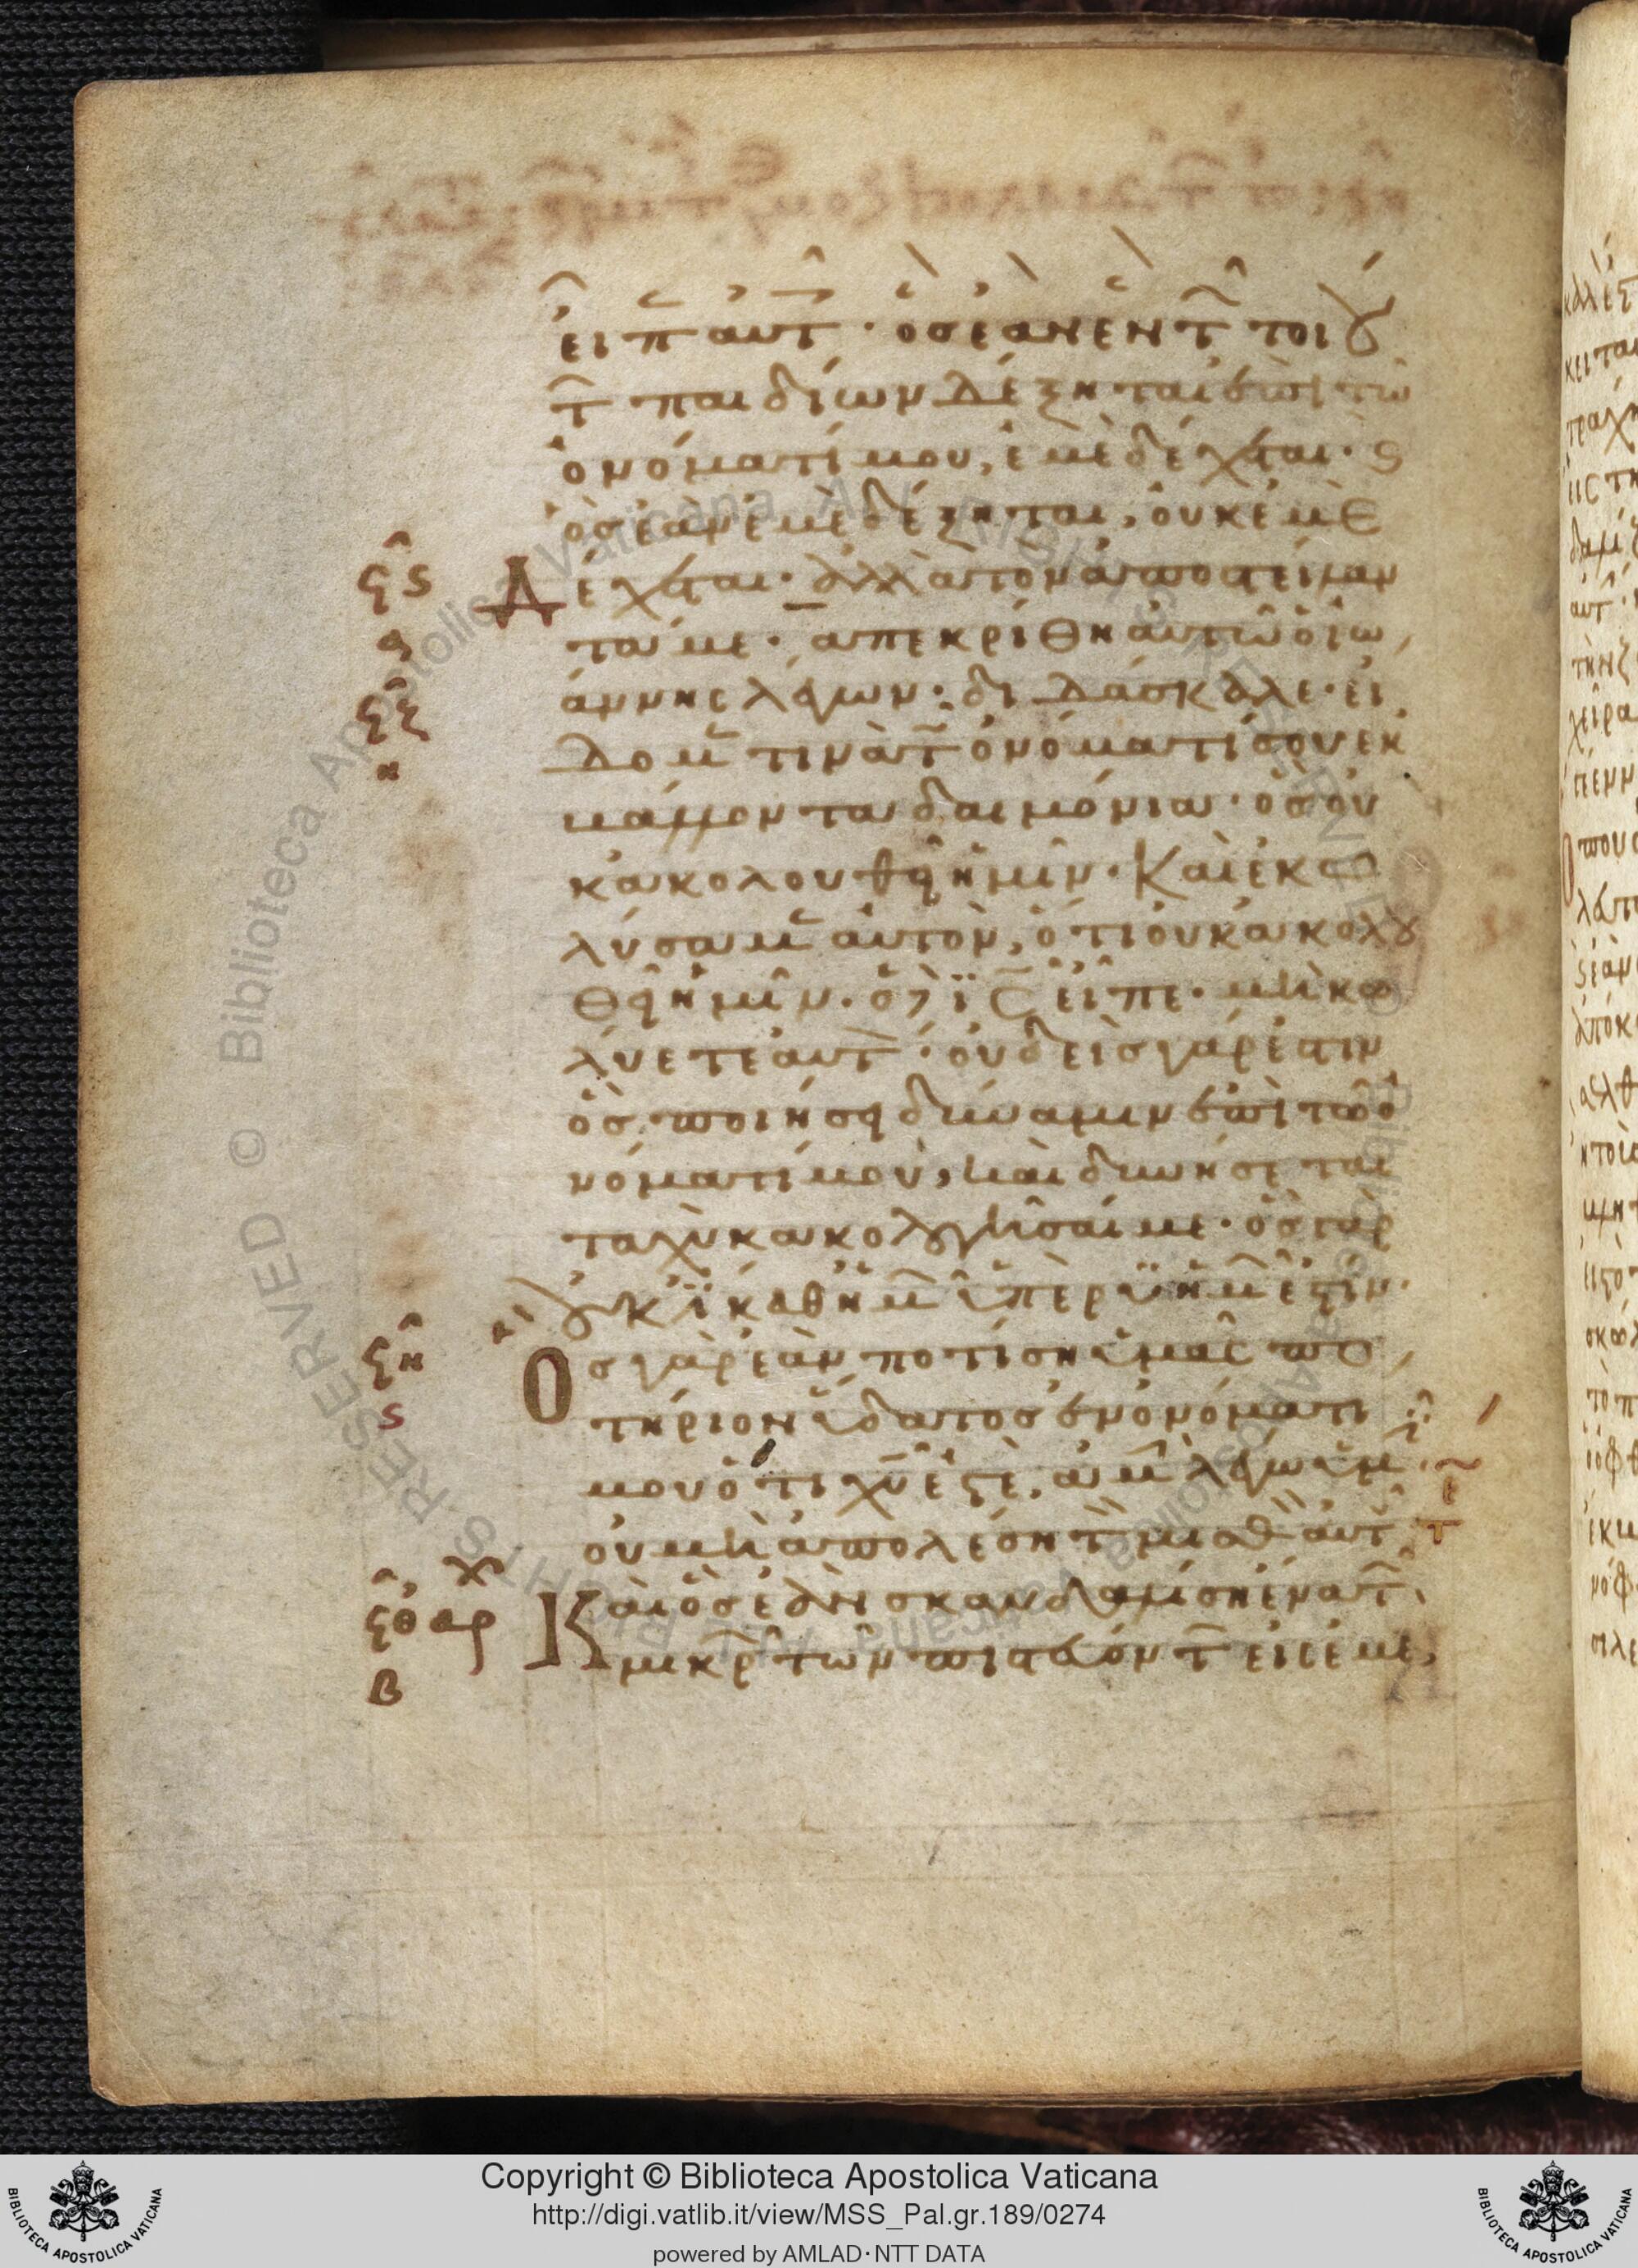 εἶπ αὐτ · ὃς ἐὰν ἓν τ τοιȣ
τ παιδίων δέξηται ἐπὶ τῶ
ὀνόματί μου, ἐμὲ δέχεται · ϗ
ὃς ἐὰν ἐμὲ δέξηται, οὐκ ἐμὲ
δέχεται · ἀλλὰ τὸν ἀποστείλαν
τα με · ἀπεκρίθη αὐτῶ ὁ ἰω
άννης λέγων · διδάσκαλε · εἴ
δομ τινὰ τ ὀνόματί σου ἐκ
βάλλοντα δαιμόνια · ὃς οὐ
κ ἀκολουθεῖ ἡμῖν · Καὶ ἐκω
λύσαμ αὐτὸν, ὅτι οὐκ ἀκολȣ
θεῖ ἡμῖν · ὁ δὲ ις εἶπε · μὴ κω
λύετε αὐτ · οὐδεὶς γάρ ἐστιν
ὃς ποιήσει δύναμιν ἐπὶ τῶ ὀ
νόματί μου, καὶ δυνήσεται
ταχὺ κακολογῆσαί με · ὃς γὰρ
ȣκ
Ὃς γὰρ ἐὰν ποτίση ὑμᾶς πο
τήριον ὕδατος ἐν ὀνόματι
μου ὅτι χυ ἐστε, ἀμ λέγω ὑμ
οὐ μὴ ἀπολέση τ μισθ αὐτ
Καὶ ὃς ἐὰν σκανδαλίση ἕνα τ
μικρ τῶν πιστευόντ εἰς ἐμὲ,
ϟϛ
ϟζ
η
ϟη
ϛ
ϟθ αρ
β
Copyright © Biblioteca Apostolica Vaticana
http://digi.vatlib.it/view/MSS_Pal.gr.189/0274
powered by AMLAD·NTT DATA
BIBLIOTECA APOSTOLICA VATICANA
BIBLIOTECA APOSTOLICA VATICANA